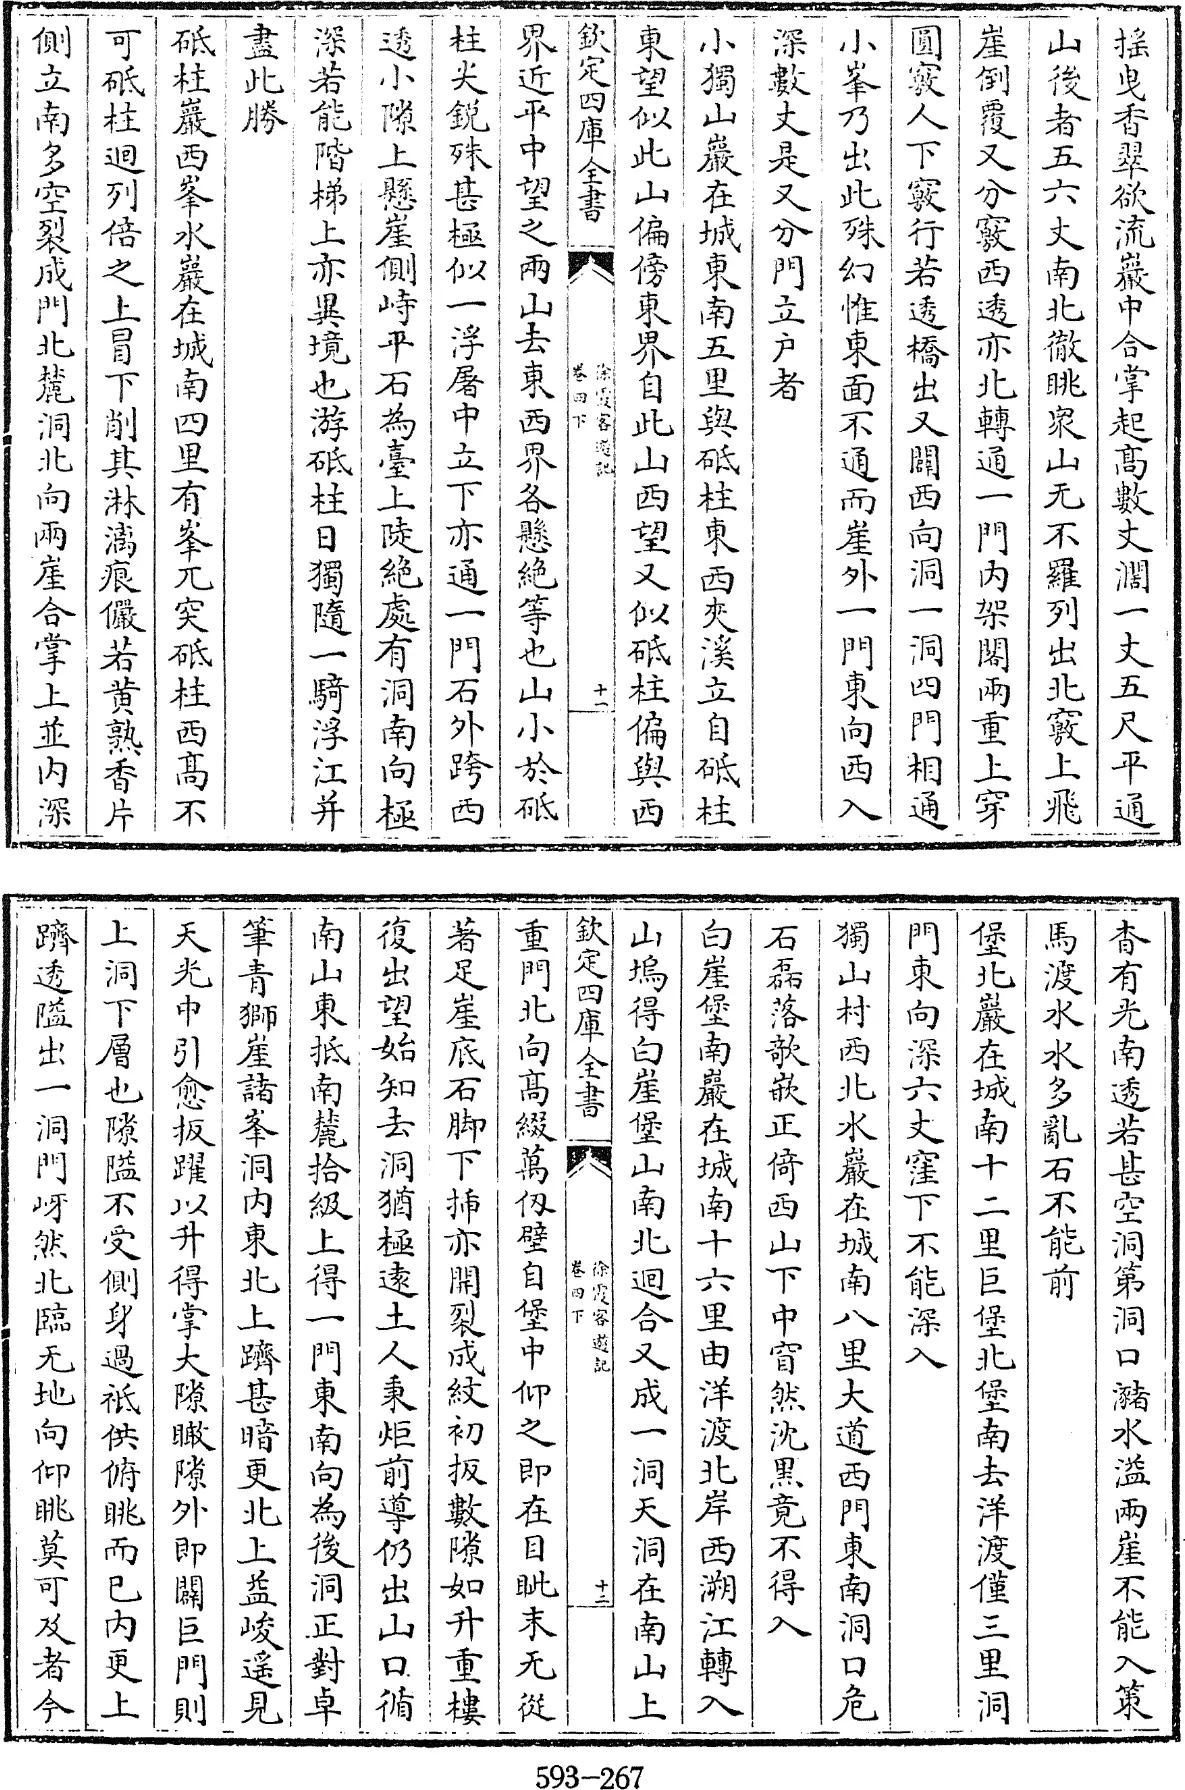 搖曳香翠欲流巖中合掌起高數丈濶一丈五尺平通
山後者五六丈南北徹眺衆山无不羅列出北竅上飛
崖倒覆又分竅西透亦北轉通一門内架閣兩重上穿
圓竅人下竅行若透橋出又闢西向洞一洞四門相通
小峯乃出此殊幻惟東面不通而崖外一門東向西入
深數丈是又分門立户者
小獨山巖在城東南五里與砥柱東西夾溪立自砥柱
東望似此山偏傍東界自此山西望又似砥柱偏與西
欽定四庫全書
徐霞客遊記
卷四下
十一
界近平中望之兩山去東西界各懸絶等也山小於砥
柱尖鋭殊甚極似一浮屠中立下亦通一門石外跨西
透小隙上懸崖側峙平石為臺上陡絶處有洞南向極
深若能階梯上亦異境也游砥柱日獨隨一騎浮江并
盡此勝
砥柱巖西峯水巖在城南四里有峯兀突砥柱西高不
可砥柱迴列倍之上冒下削其淋漓痕儼若黄熟香片
側立南多空裂成門北麓洞北向兩崖合掌上並内深
杳有光南透若甚空洞第洞口瀦水溢兩崖不能入策
馬渡水水多亂石不能前
堡北巖在城南十二里巨堡北堡南去洋渡僅三里洞
門東向深六丈窪下不能深入
獨山村西北水巖在城南八里大道西門東南洞口危
石磊落欹嵌正倚西山下中窅然沈黒竟不得入
白崖堡南巖在城南十六里由洋渡北岸西溯江轉入
山塢得白崖堡山南北迴合又成一洞天洞在南山上
欽定四庫全書
徐霞客遊記
卷四下
十二
重門北向高綴萬仭壁自堡中仰之即在目眦末无從
著足崖底石脚下插亦開裂成紋初扳數隙如升重樓
復出望始知去洞猶極逺土人秉炬前導仍出山口循
南山東抵南麓拾級上得一門東南向為後洞正對卓
筆青獅崖諸峯洞内東北上躋甚暗更北上益峻遥見
天光中引愈扳躍以升得掌大隙瞰隙外即闢巨門則
上洞下層也隙隘不受側身過祗供俯眺而已内更上
躋透隘出一洞門岈然北臨无地向仰眺莫可及者今
593-267